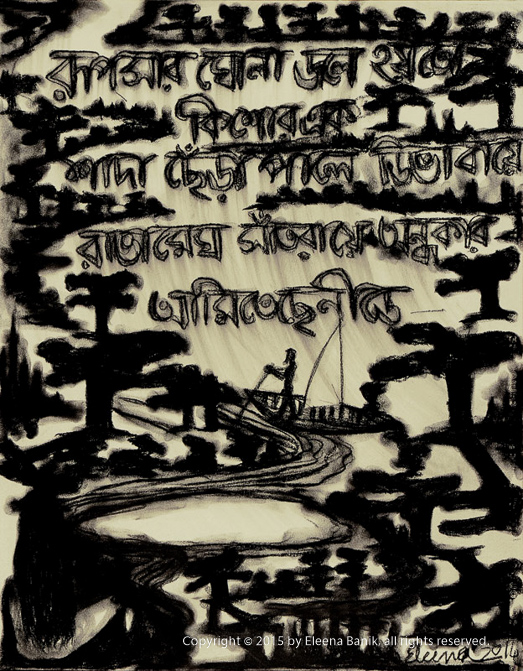 রূপসার ঘোলা জল হয়তো
কিশোর এক
শাদা ছেঁড়া পালে ডিঙা বায়ে
রাঙা মেঘ সাঁতরায়ে অন্ধকার
আসিতেছে নীড়ে
Copyright © 2015 by Eleena Banik, all rights reserved.
Eleena 2014